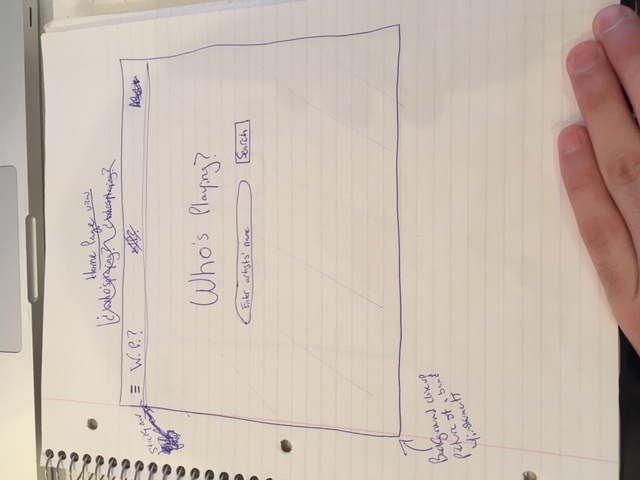 Home Page view
¿who'splaying? ¿whosplaying?
sticky nav
W.P.?
Who's Playing?
Enter artists' name
Search
Background closeup
picture of a band